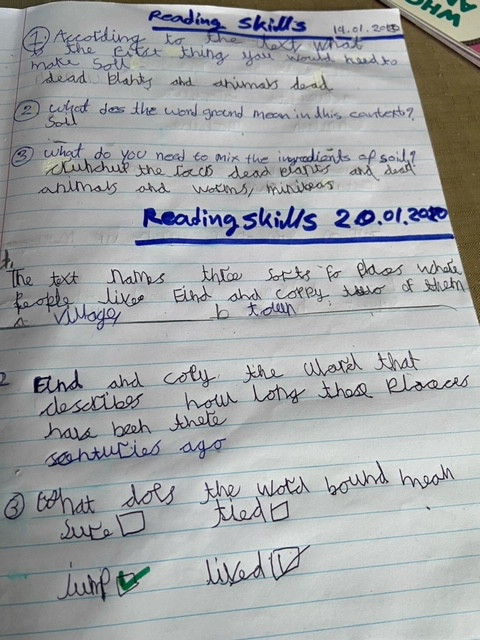 Reading skills 19.01.2020
① According to the text what
is the first thing you would need to
make soil
dead plants and animals dead
② what does the word ground mean in this context?
Soil
③ what do you need to mix the ingredients of soil?
the rock dead plants and dead
animals and worms, minibeas
Reading skills 20.01.2020
1.
The text names three sorts fo places where
people live. Find and coppy two of them
a village, b town
2 Find and copy the word that
describes how long these Plaeces
have been there
senturies ago
③ What does the word bound mean
Sure tied
jump lived
WHO
AN